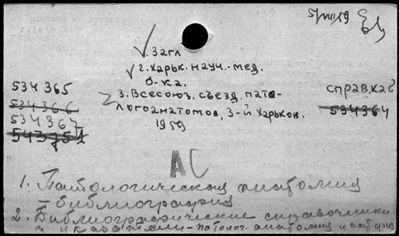 5/VIII 59
1. Загл
2. Харьк. науч.-мед.
б-ка.
3. Всесоюз. съезд пато-
логоанатомов, 3-й Харьков.
1959
534365
534366
534367
справ. каб
534364
АС
1. Патологическая анатомия
– библиография
2. Библиографические справочники
и указатели - патолог. анатомия